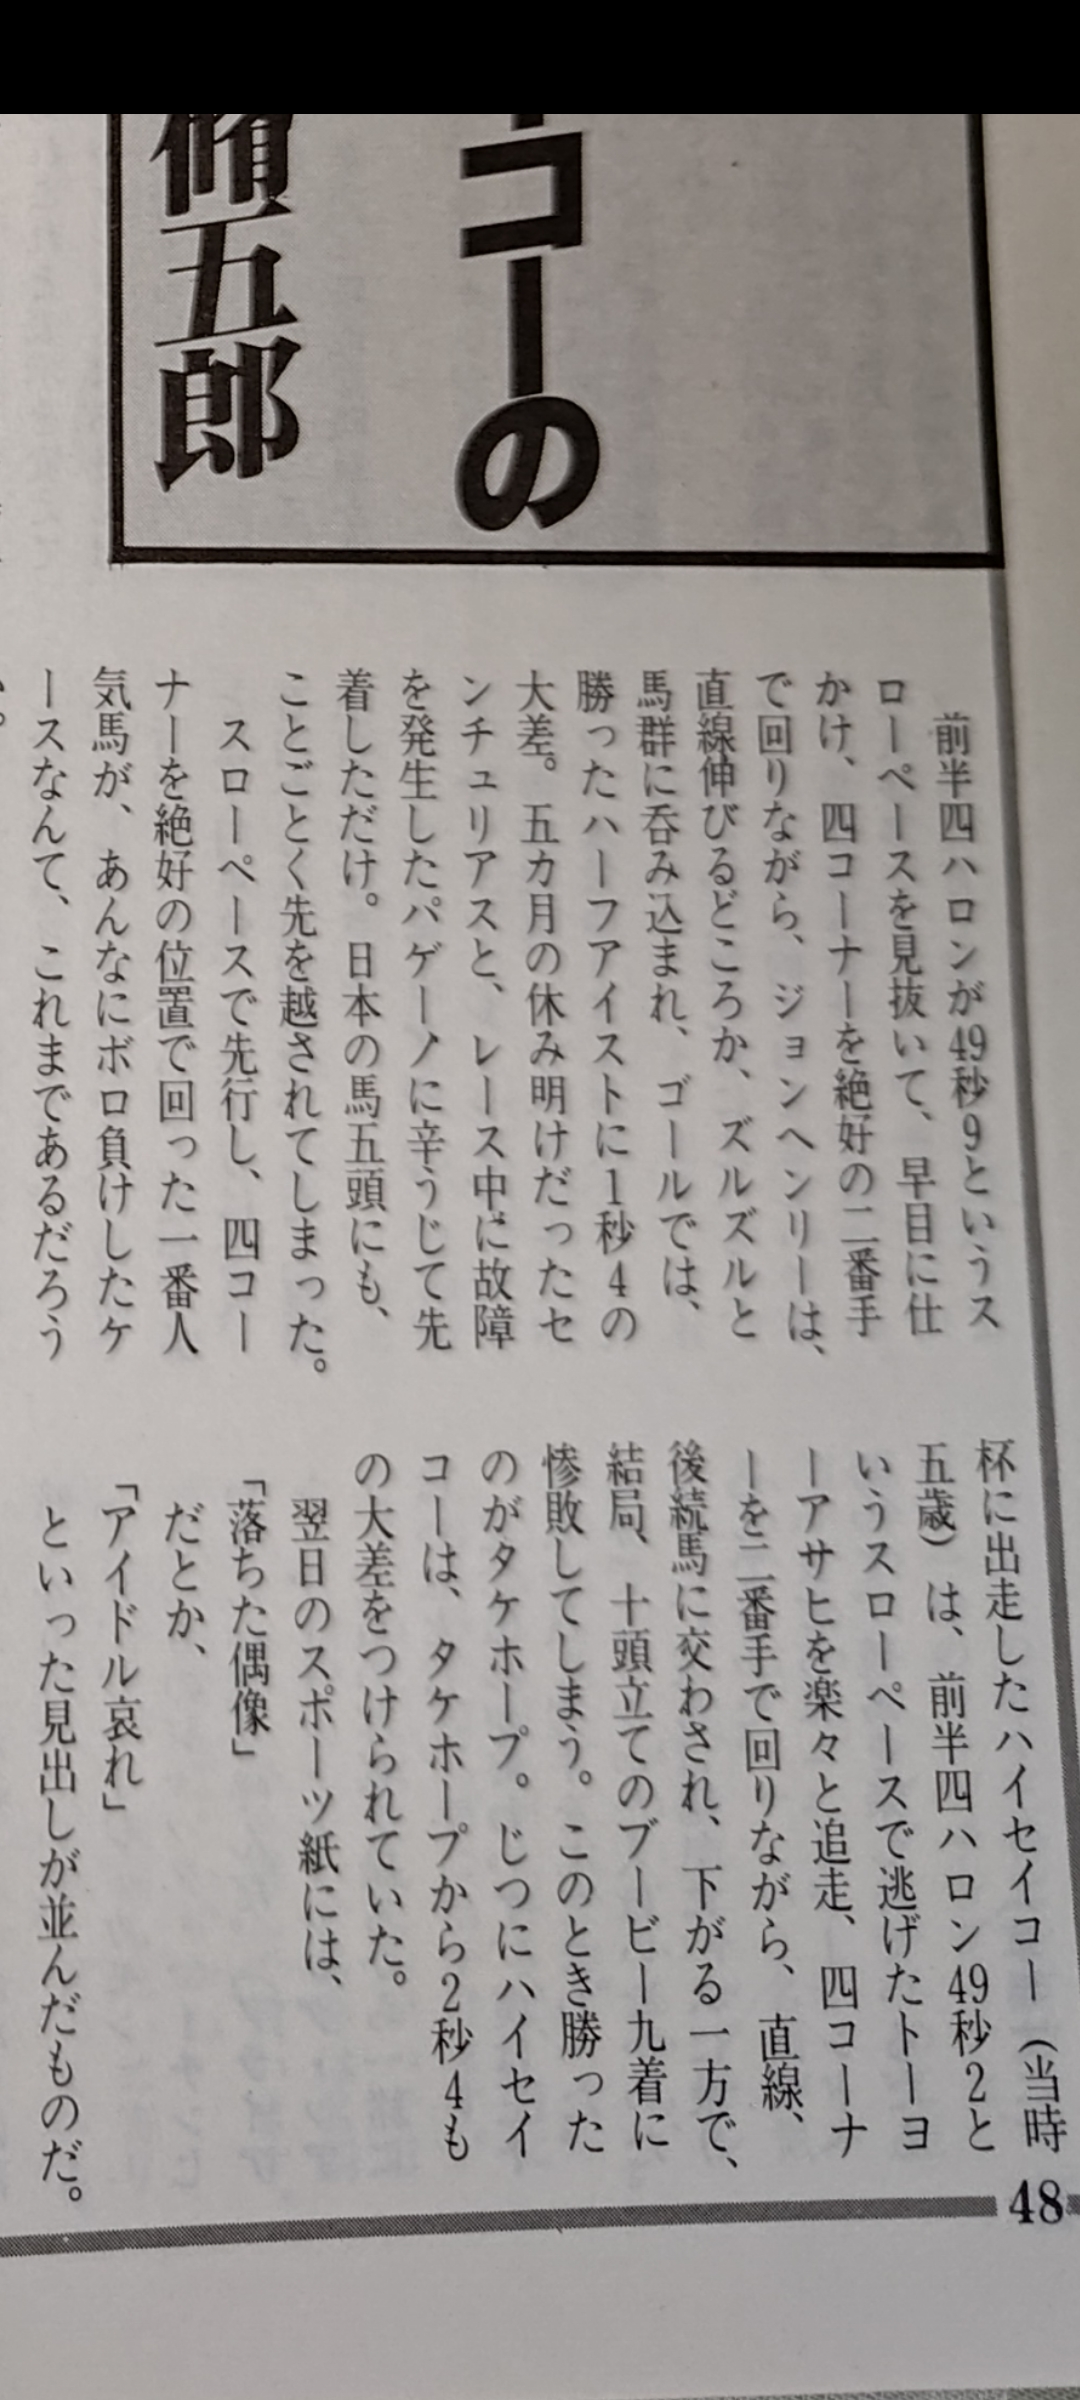 コーの
脩五郎
前半四ハロンが49秒9というス
ローペースを見抜いて、早目に仕
かけ、四コーナーを絶好の二番手
で回りながら、ジョンヘンリーは、
直線伸びるどころか、ズルズルと
馬群に呑み込まれ、ゴールでは、
勝ったハーフアイストに1秒4の
大差。五カ月の休み明けだったセ
ンチュリアスと、レース中に故障
を発生したパゲーノに辛うじて先
着しただけ。日本の馬五頭にも、
ことごとく先を越されてしまった。
スローペースで先行し、四コー
ナーを絶好の位置で回った一番人
気馬が、あんなにボロ負けしたケ
ースなんて、これまであるだろう
杯に出走したハイセイコー（当時
五歳）は、前半四ハロン49秒2と
いうスローペースで逃げたトーヨ
ーアサヒを楽々と追走、四コーナ
ーを二番手で回りながら、直線、
後続馬に交わされ、下がる一方で、
結局、十頭立てのブービー九着に
惨敗してしまう。このとき勝った
のがタケホープ。じつにハイセイ
コーは、タケホープから2秒4も
の大差をつけられていた。
翌日のスポーツ紙には、
「落ちた偶像」
だとか、
「アイドル哀れ」
といった見出しが並んだものだ。
48